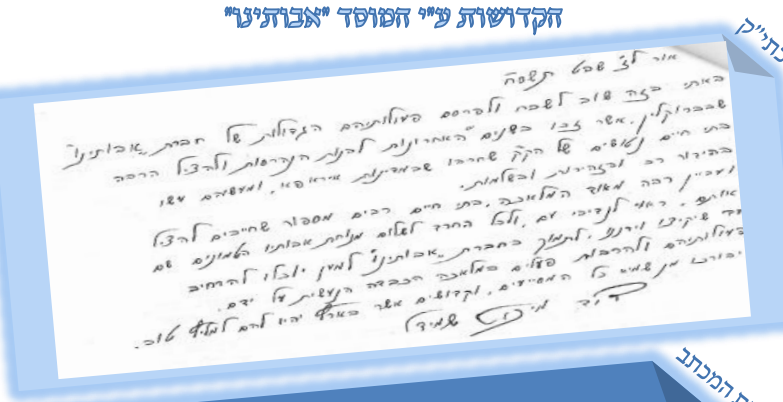 הקדושות ע"י המוסד "אבותינו"
כתי"ק
אור לז' שבט תשסח
באתי בזה שוב לשבח ולפרסם פעולותיהם הגדולות של חברת "אבותינו"
שבברוקלין, אשר זכו בשנים האחרונות לבנות הנהרסות ולהציל הרבה
בתי חיים נטושים של הקק שחרבו שבמדינות אייראפא, ומעשיהם עשו
בהידור רב ובזהירות ובשלמות.
ועדיין רבה מאוד המלאכה, בתי חיים רבים מספור שחייבים להציל
אותם, ראוי לנדיבי עם, ולכל החרד לשלום מנוחת אבותיו הטמונים שם
עד שיקיצו וירננו, לתמוך בחברת "אבותינו" למען יוכלו להרחיב
פעולותיהם ולהרבות פעלים במלאכה הכבדה הנעשית על ידם.
יבורכו מן שמיא כל המסייעים, וקדושים אשר בארץ יהיו להם למליץ טוב.
דוד שמידל
המכתב